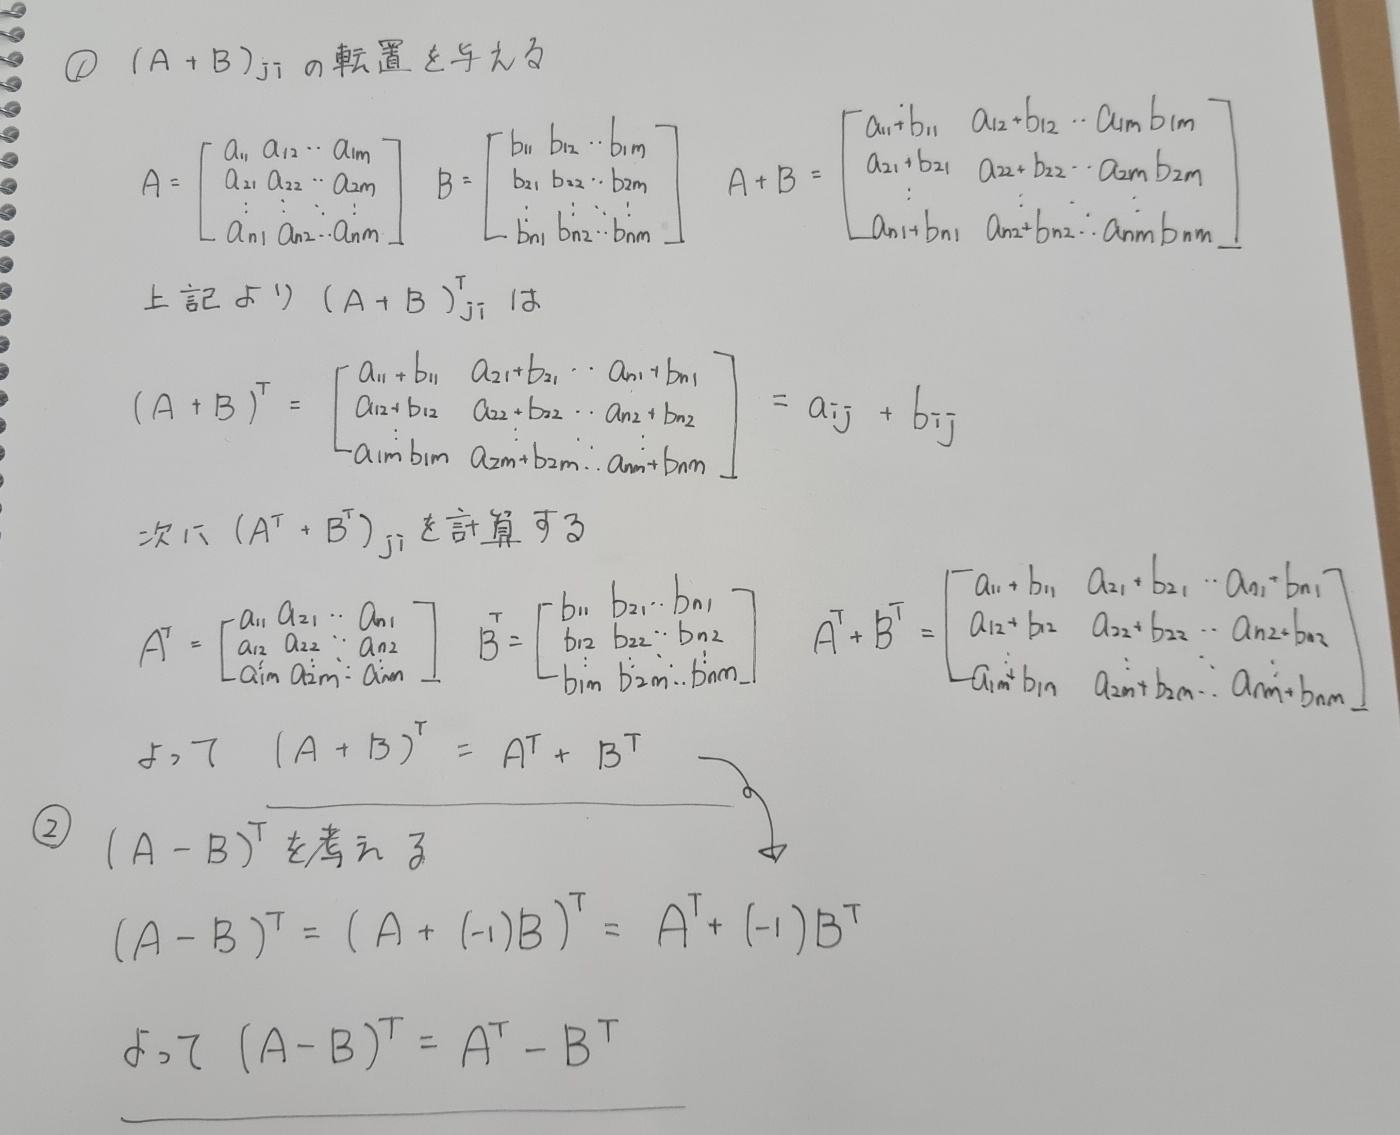 ① (A + B)ji の転置を与える
A = [a11 a12 ‥ a1m
a21 a22 ‥ a2m
⋮ ⋮ ⋱ ⋮
an1 an2 ‥ anm] B = [b11 b12 ‥ b1m
b21 b22 ‥ b2m
⋮ ⋮ ⋱ ⋮
bn1 bn2 ‥ bnm] A + B = [a11+b11 a12+b12 ‥ a1m b1m
a21+b21 a22+b22 ‥ a2m b2m
⋮ ⋮ ⋱ ⋮
an1+bn1 an2+bn2 ‥ anm bnm]
上記より (A + B)ᵀji は
(A + B)ᵀ = [a11+b11 a21+b21 ‥ an1+bn1
a12+b12 a22+b22 ‥ an2+bn2
⋮ ⋮ ⋱ ⋮
a1m b1m a2m+b2m ‥ anm+bnm] = aij + bij
次に (Aᵀ + Bᵀ)ji を計算する
Aᵀ = [a11 a21 ‥ an1
a12 a22 ‥ an2
⋮ ⋮ ⋱ ⋮
a1m a2m ‥ anm] Bᵀ = [b11 b21 ‥ bn1
b12 b22 ‥ bn2
⋮ ⋮ ⋱ ⋮
b1m b2m ‥ bnm] Aᵀ + Bᵀ = [a11+b11 a21+b21 ‥ an1+bn1
a12+b12 a22+b22 ‥ an2+bn2
⋮ ⋮ ⋱ ⋮
a1m+b1n a2m+b2m ‥ anm+bnm]
よって (A + B)ᵀ = Aᵀ + Bᵀ
② (A − B)ᵀ を考える
(A − B)ᵀ = (A + (-1)B)ᵀ = Aᵀ + (-1)Bᵀ
よって (A − B)ᵀ = Aᵀ − Bᵀ